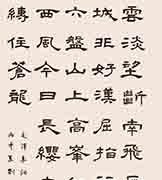 雲淡望斷南飛
城非好漢屈指
六盤山上高峰
西風今日長纓
縛住蒼龍
毛澤東詞